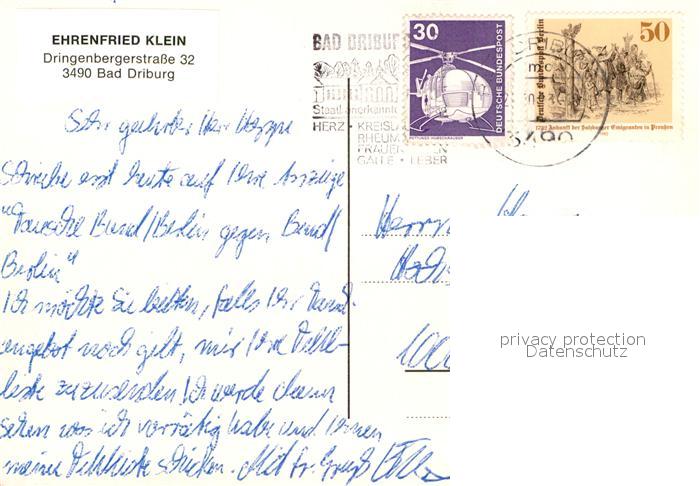 EHRENFRIED KLEIN
Dringenbergerstraße 32
3490 Bad Driburg
BAD DRIBUR
Staatl. anerkannt
HERZ • KREISL
RHEUM
FRAUEN EN
GALLE • LEBER
30
DEUTSCHE BUNDESPOST
RETTUNGS-HUBSCHRAUBER
50
Deutsche Bundespost Berlin
1732 Ankunft der Salzburger Emigranten in Preußen
3490
Sehr geehrter Herr Hoppe
Schreibe erst heute auf Ihre Anzeige
"Tausche Bund/Berlin gegen Bund/
Berlin"
Ich möchte Sie bitten, falls Ihr Tausch-
angebot noch gilt, mir Ihre Fehl-
liste zuzusenden. Ich werde dann
sehen was ich vorrätig habe und Ihnen
meine Fehlliste schicken. Mit fr. Gruß
Herrn
1000
privacy protection
Datenschutz